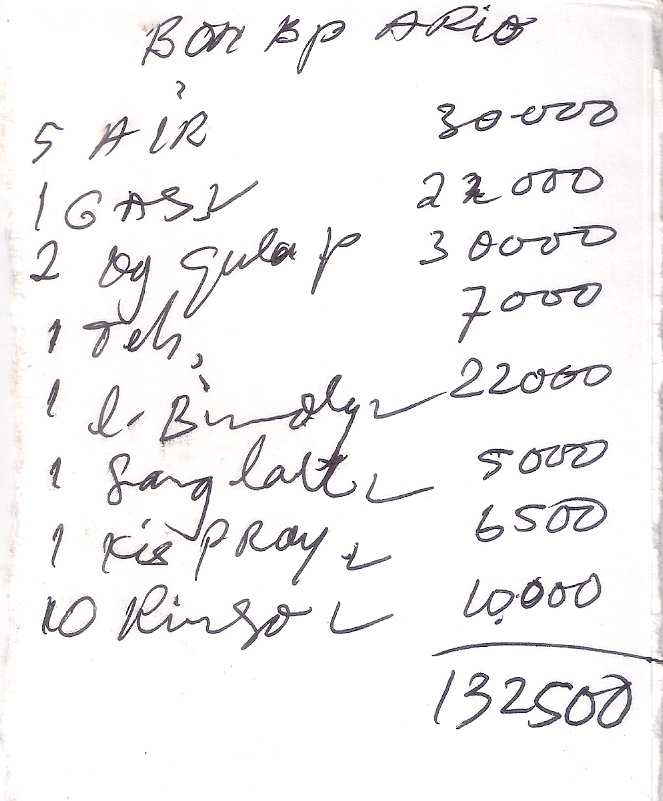 Bon Bp ARio
5 AIR 30000
1 GAS 22000
2 kg gula P 30000
1 Teh 7000
1 l. Bimoly 22000
1 5000
1 Kis PRay 6500
10 Rinso 10.000
132500